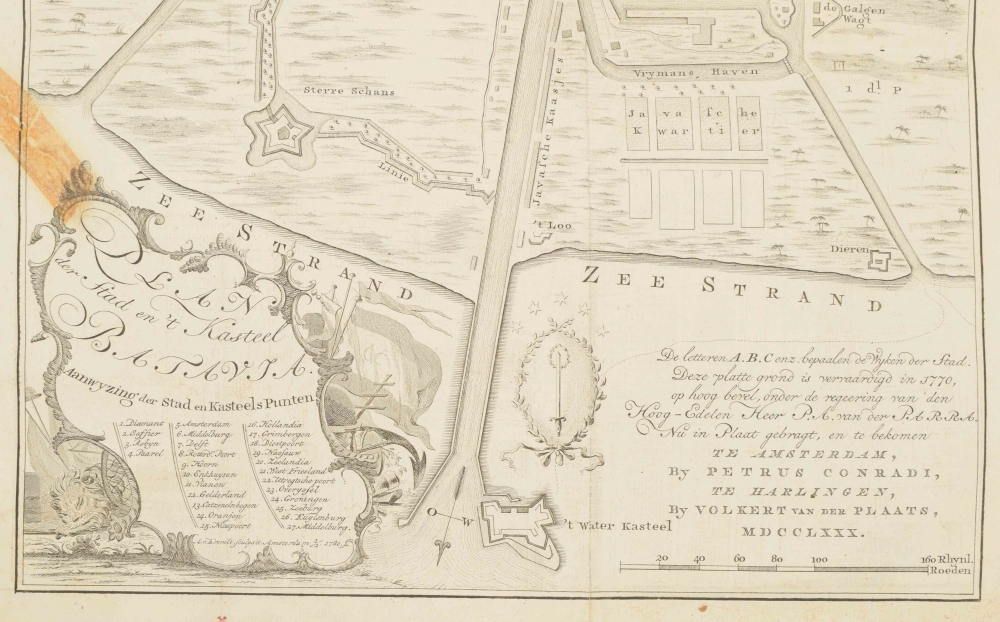 de Galgen
Wagt
Sterre Schans
Vrymans Haven
1 dl P
Ja va sc he
K war ti er
Javasche Kaasjes
Linie
't Loo
Dieren
ZEE STRAND
ZEE STRAND
PLAN
der Stad en 't Kasteel
BATAVIA.
Aanwyzing der Stad en Kasteels Punten
1. Diamant
2. Saffier
3. Robyn
4. Paarel
5. Amsterdam
6. Middelburg
7. Delft
8. Rotterd. Poort
9. Hoorn
10. Enkhuysen
11. Vianen
12. Gelderland
13. Catzenelnbogen
14. Oranjen
15. Nieupoort
16. Hollandia
17. Grimbergen
18. Diestpoort
19. Nassauw
20. Zeelandia
21. West Friesland
22. Utregtsche poort
23. Overyssel
24. Groningen
25. Zeeburg
26. Kuylenburg
27. Middelburg.
De letteren A.B.C enz. bepaalen de Wyken der Stad.
Deze platte grond is vervaardigd in 1770,
op hoog bevel, onder de regeering van den
Hoog-Edelen Heer P.A. van der PARRA.
Nu in Plaat gebragt, en te bekomen
TE AMSTERDAM,
By PETRUS CONRADI,
TE HARLINGEN,
By VOLKERT VAN DER PLAATS,
MDCCLXXX.
O W
't Water Kasteel
20 40 60 80 100 160 Rhynl.
Roeden